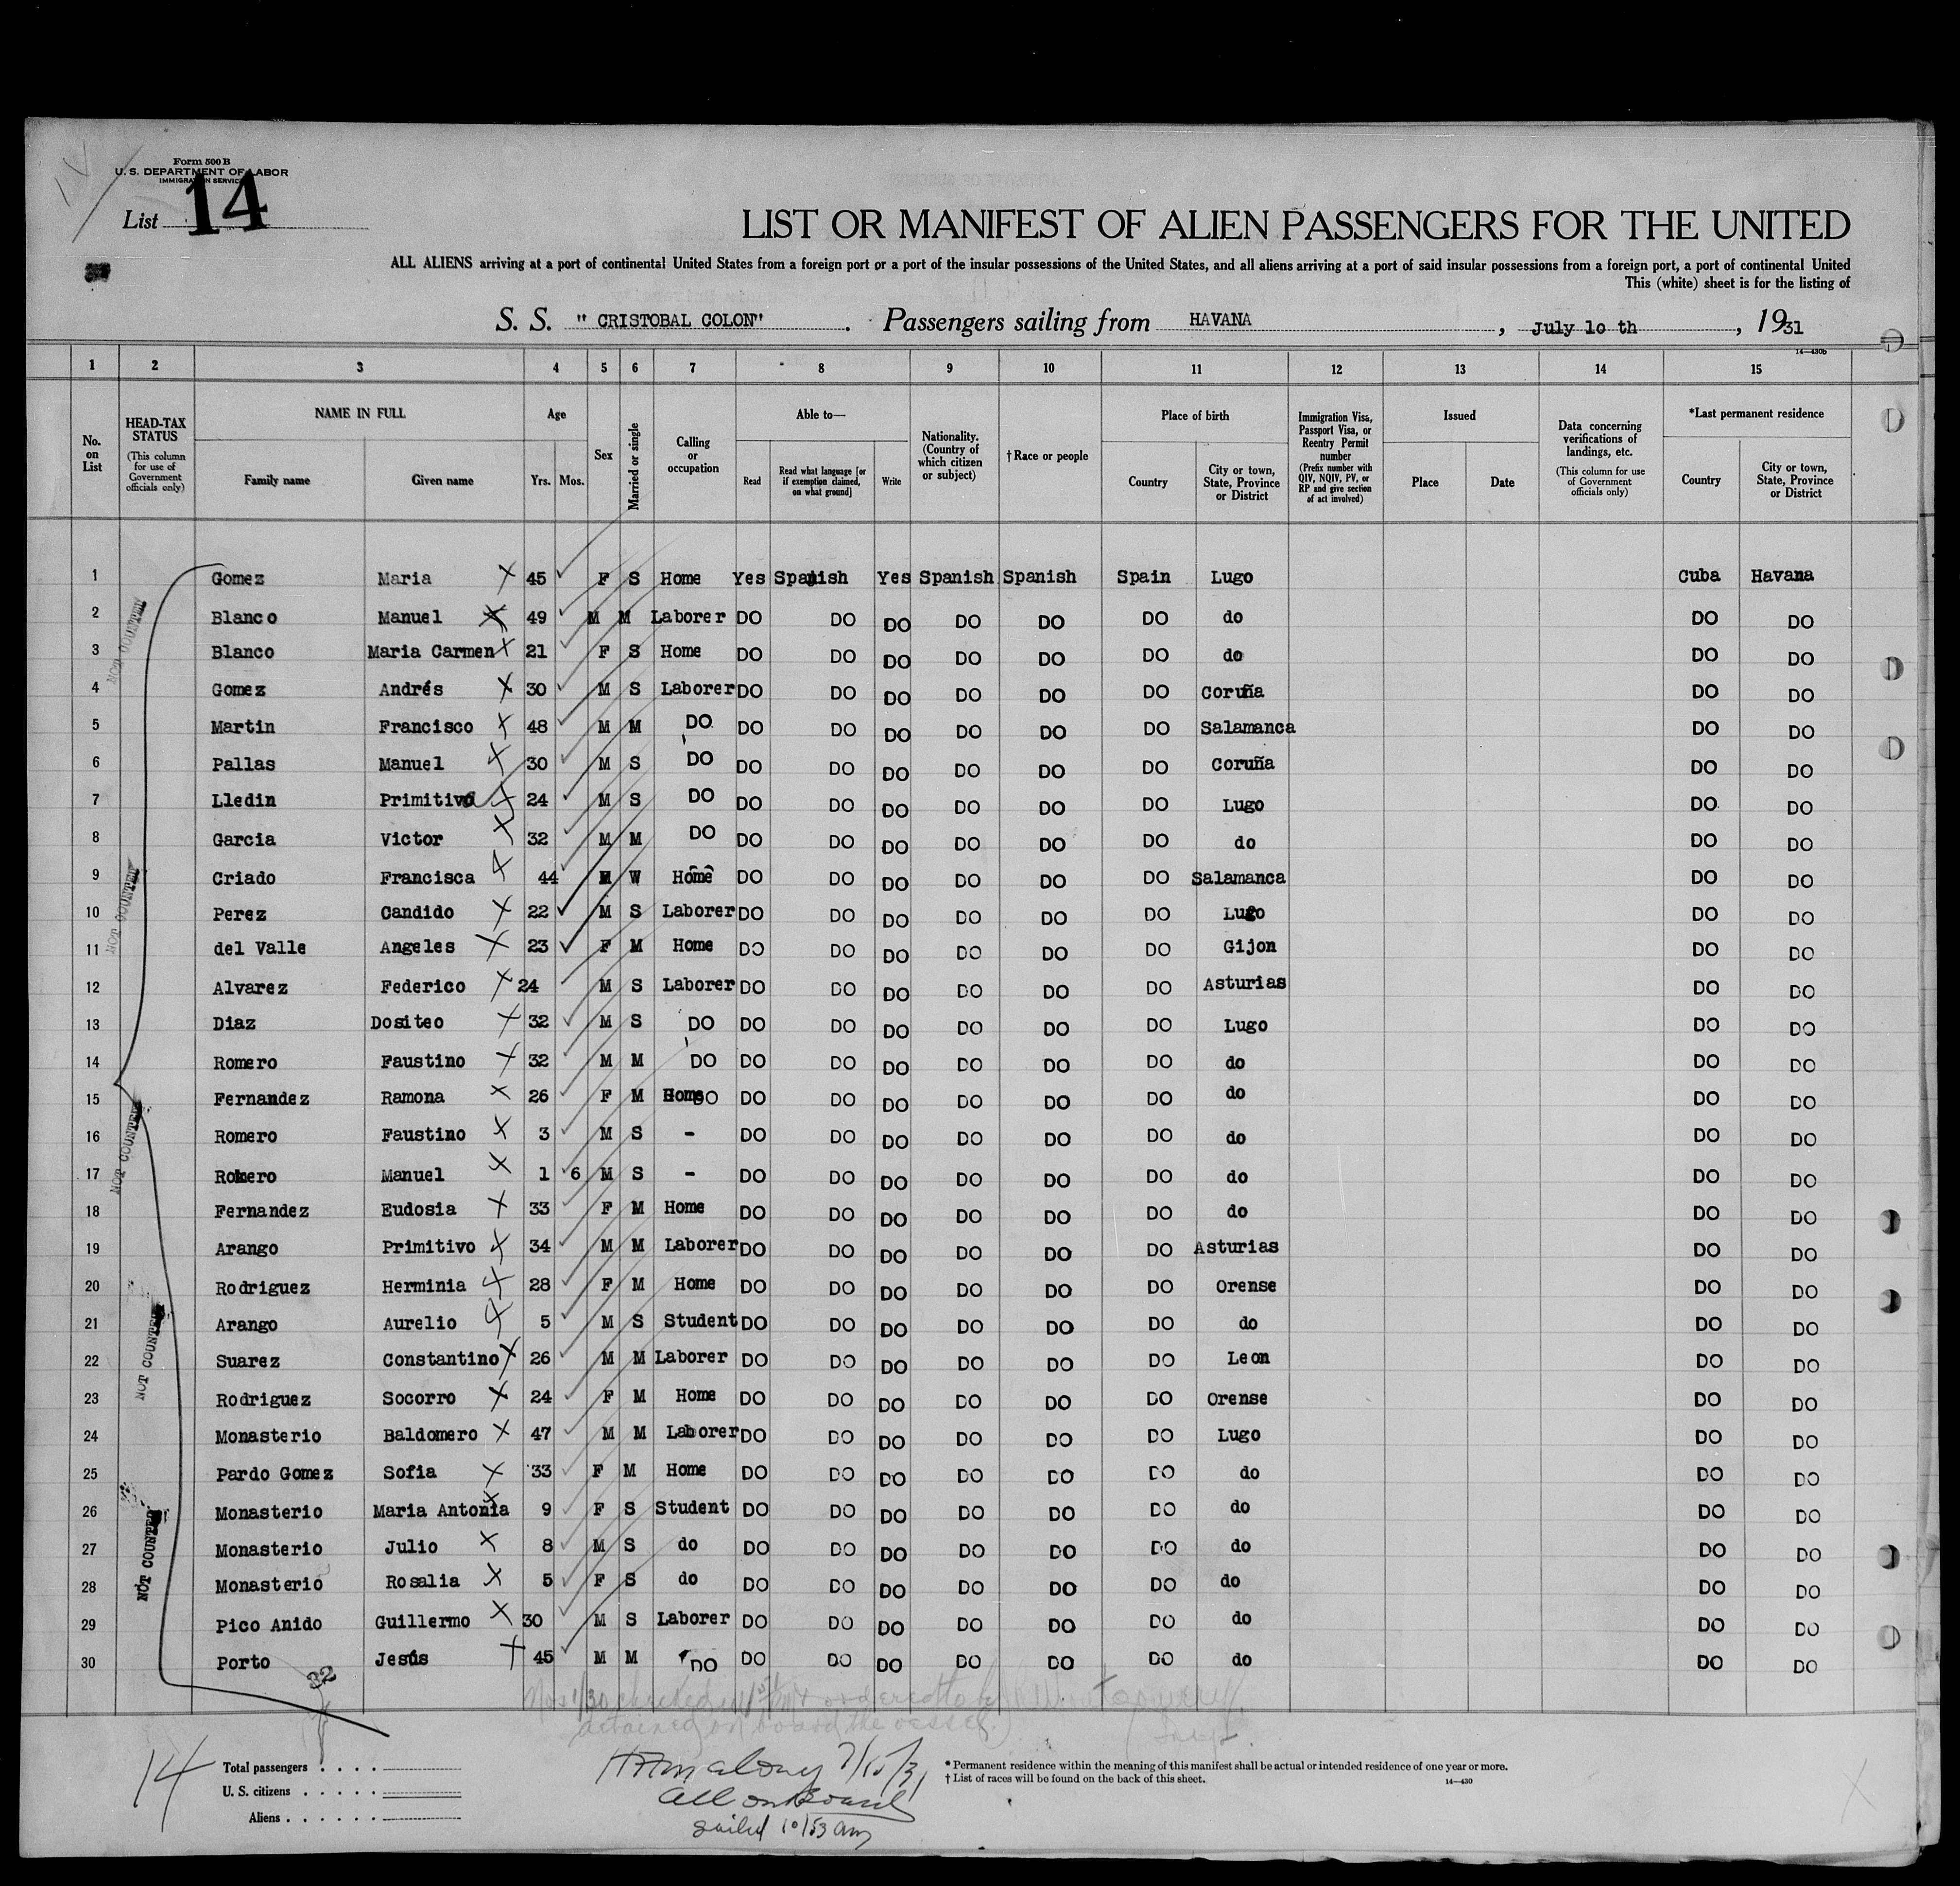 Form 500 B
U. S. DEPARTMENT OF LABOR
IMMIGRATION SERVICE
List 14
LIST OR MANIFEST OF ALIEN PASSENGERS FOR THE UNITED
ALL ALIENS arriving at a port of continental United States from a foreign port or a port of the insular possessions of the United States, and all aliens arriving at a port of said insular possessions from a foreign port, a port of continental United
This (white) sheet is for the listing of
S. S. " CRISTOBAL COLON" . Passengers sailing from HAVANA , July 10 th , 1931
14—430b
1 2 3 4 5 6 7 8 9 10 11 12 13 14 15
No. on List
HEAD-TAX STATUS (This column for use of Government officials only)
NAME IN FULL Family name Given name
Age Yrs. Mos.
Sex
Married or single
Calling or occupation
Able to— Read Read what language [or if exemption claimed, on what ground] Write
Nationality. (Country of which citizen or subject)
†Race or people
Place of birth Country City or town, State, Province or District
Immigration Visa, Passport Visa, or Reentry Permit number (Prefix number with QIV, NQIV, PV, or RP and give section of act involved)
Issued Place Date
Data concerning verifications of landings, etc. (This column for use of Government officials only)
*Last permanent residence Country City or town, State, Province or District
1 Gomez Maria 45 F S Home Yes Spanish Yes Spanish Spanish Spain Lugo Cuba Havana
2 Blanco Manuel 49 M M Laborer DO DO DO DO DO DO do DO DO
3 Blanco Maria Carmen 21 F S Home DO DO DO DO DO DO do DO DO
4 Gomez Andrés 30 M S Laborer DO DO DO DO DO DO Coruña DO DO
5 Martin Francisco 48 M M DO DO DO DO DO DO DO Salamanca DO DO
6 Pallas Manuel 30 M S DO DO DO DO DO DO DO Coruña DO DO
7 Lledin Primitivo 24 M S DO DO DO DO DO DO DO Lugo DO DO
8 Garcia Victor 32 M M DO DO DO DO DO DO DO do DO DO
9 Criado Francisca 44 W Home DO DO DO DO DO DO Salamanca DO DO
10 Perez Candido 22 M S Laborer DO DO DO DO DO DO Lugo DO DO
11 del Valle Angeles 23 F M Home DO DO DO DO DO DO Gijon DO DO
12 Alvarez Federico 24 M S Laborer DO DO DO DO DO DO Asturias DO DO
13 Diaz Dositeo 32 M S DO DO DO DO DO DO DO Lugo DO DO
14 Romero Faustino 32 M M DO DO DO DO DO DO DO do DO DO
15 Fernandez Ramona 26 F M Home DO DO DO DO DO DO do DO DO
16 Romero Faustino 3 M S - DO DO DO DO DO DO do DO DO
17 Romero Manuel 1 6 M S - DO DO DO DO DO DO do DO DO
18 Fernandez Eudosia 33 F M Home DO DO DO DO DO DO do DO DO
19 Arango Primitivo 34 M M Laborer DO DO DO DO DO DO Asturias DO DO
20 Rodriguez Herminia 28 F M Home DO DO DO DO DO DO Orense DO DO
21 Arango Aurelio 5 M S Student DO DO DO DO DO DO do DO DO
22 Suarez Constantino 26 M M Laborer DO DO DO DO DO DO Leon DO DO
23 Rodriguez Socorro 24 F M Home DO DO DO DO DO DO Orense DO DO
24 Monasterio Baldomero 47 M M Laborer DO DO DO DO DO DO Lugo DO DO
25 Pardo Gomez Sofia 33 F M Home DO DO DO DO DO DO do DO DO
26 Monasterio Maria Antonia 9 F S Student DO DO DO DO DO DO do DO DO
27 Monasterio Julio 8 M S do DO DO DO DO DO DO do DO DO
28 Monasterio Rosalia 5 F S do DO DO DO DO DO DO do DO DO
29 Pico Anido Guillermo 30 M S Laborer DO DO DO DO DO DO do DO DO
30 Porto Jesús 45 M M DO DO DO DO DO DO DO do DO DO
NOT COUNTED
NOT COUNTED
NOT COUNTED
NOT COUNTED
NOT COUNTED
32
Nos 1/30 checked ordered to be
detained on board the vessel.
14
Total passengers
U. S. citizens
Aliens
7/15/31
All on Board
sailed 10/53 am
* Permanent residence within the meaning of this manifest shall be actual or intended residence of one year or more.
† List of races will be found on the back of this sheet.
14—430